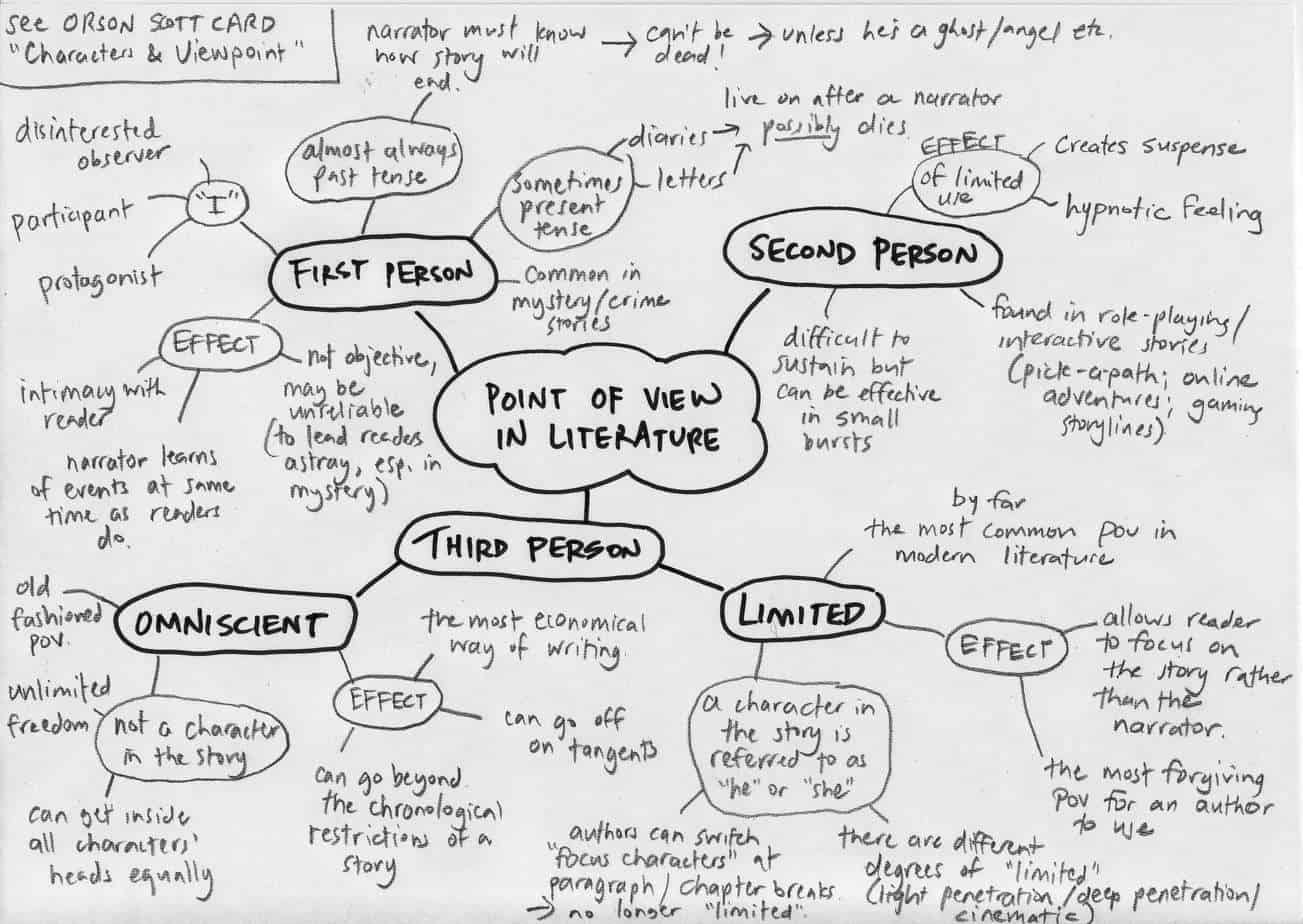 see ORSON SCOTT CARD
"Characters & Viewpoint"
narrator must know
how story will
end.
→ can't be
dead!
→ unless he's a ghost/angel etc.
disinterested
observer
participant
protagonist
"I"
almost always
past tense
sometimes
present
tense
diaries →
letters
live on after a narrator
possibly dies
FIRST PERSON
common in
mystery/crime
stories
EFFECT
intimacy with
reader
narrator learns
of events at same
time as readers
do.
not objective,
may be
unreliable
(to lead readers
astray, esp. in
mystery)
EFFECT
of limited
use
creates suspense
hypnotic feeling
SECOND PERSON
difficult to
sustain but
can be effective
in small
bursts
found in role-playing/
interactive stories
(pick-a-path; online
adventures; gaming
storylines)
POINT OF VIEW
IN LITERATURE
THIRD PERSON
OMNISCIENT
old
fashioned
pov.
unlimited
freedom
not a character
in the story
can get inside
all characters'
heads equally
EFFECT
the most economical
way of writing.
can go off
on tangents
can go beyond
the chronological
restrictions of a
story
LIMITED
by far
the most common pov in
modern literature
EFFECT
allows reader
to focus on
the story rather
than the
narrator.
the most forgiving
pov for an author
to use
a character in
the story is
referred to as
"he" or "she"
authors can switch
"focus characters" at
paragraph/chapter breaks.
→ no longer "limited".
there are different
degrees of "limited"
(light penetration/deep penetration/
cinematic)